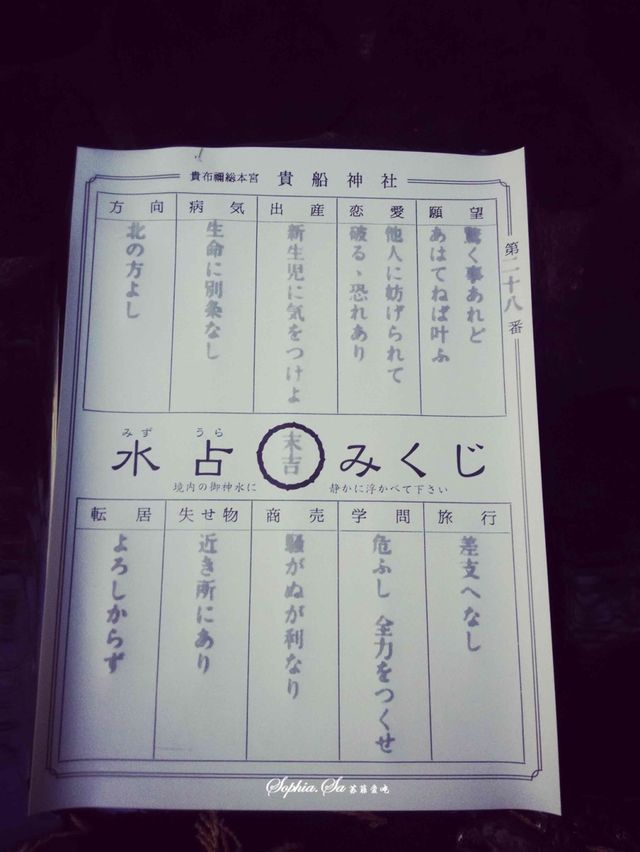 貴布禰総本宮 貴船神社
第二十八番
願望
驚く事あれど
あはてねば叶ふ
恋愛
他人に妨げられて
破るゝ恐れあり
出産
新生児に気をつけよ
病気
生命に別条なし
方向
北の方よし
みず うら
水占 末吉 みくじ
境内の御神水に 静かに浮かべて下さい
旅行
差支へなし
学問
危ふし 全力をつくせ
商売
騒がぬが利なり
失せ物
近き所にあり
転居
よろしからず
Sophia.Sa